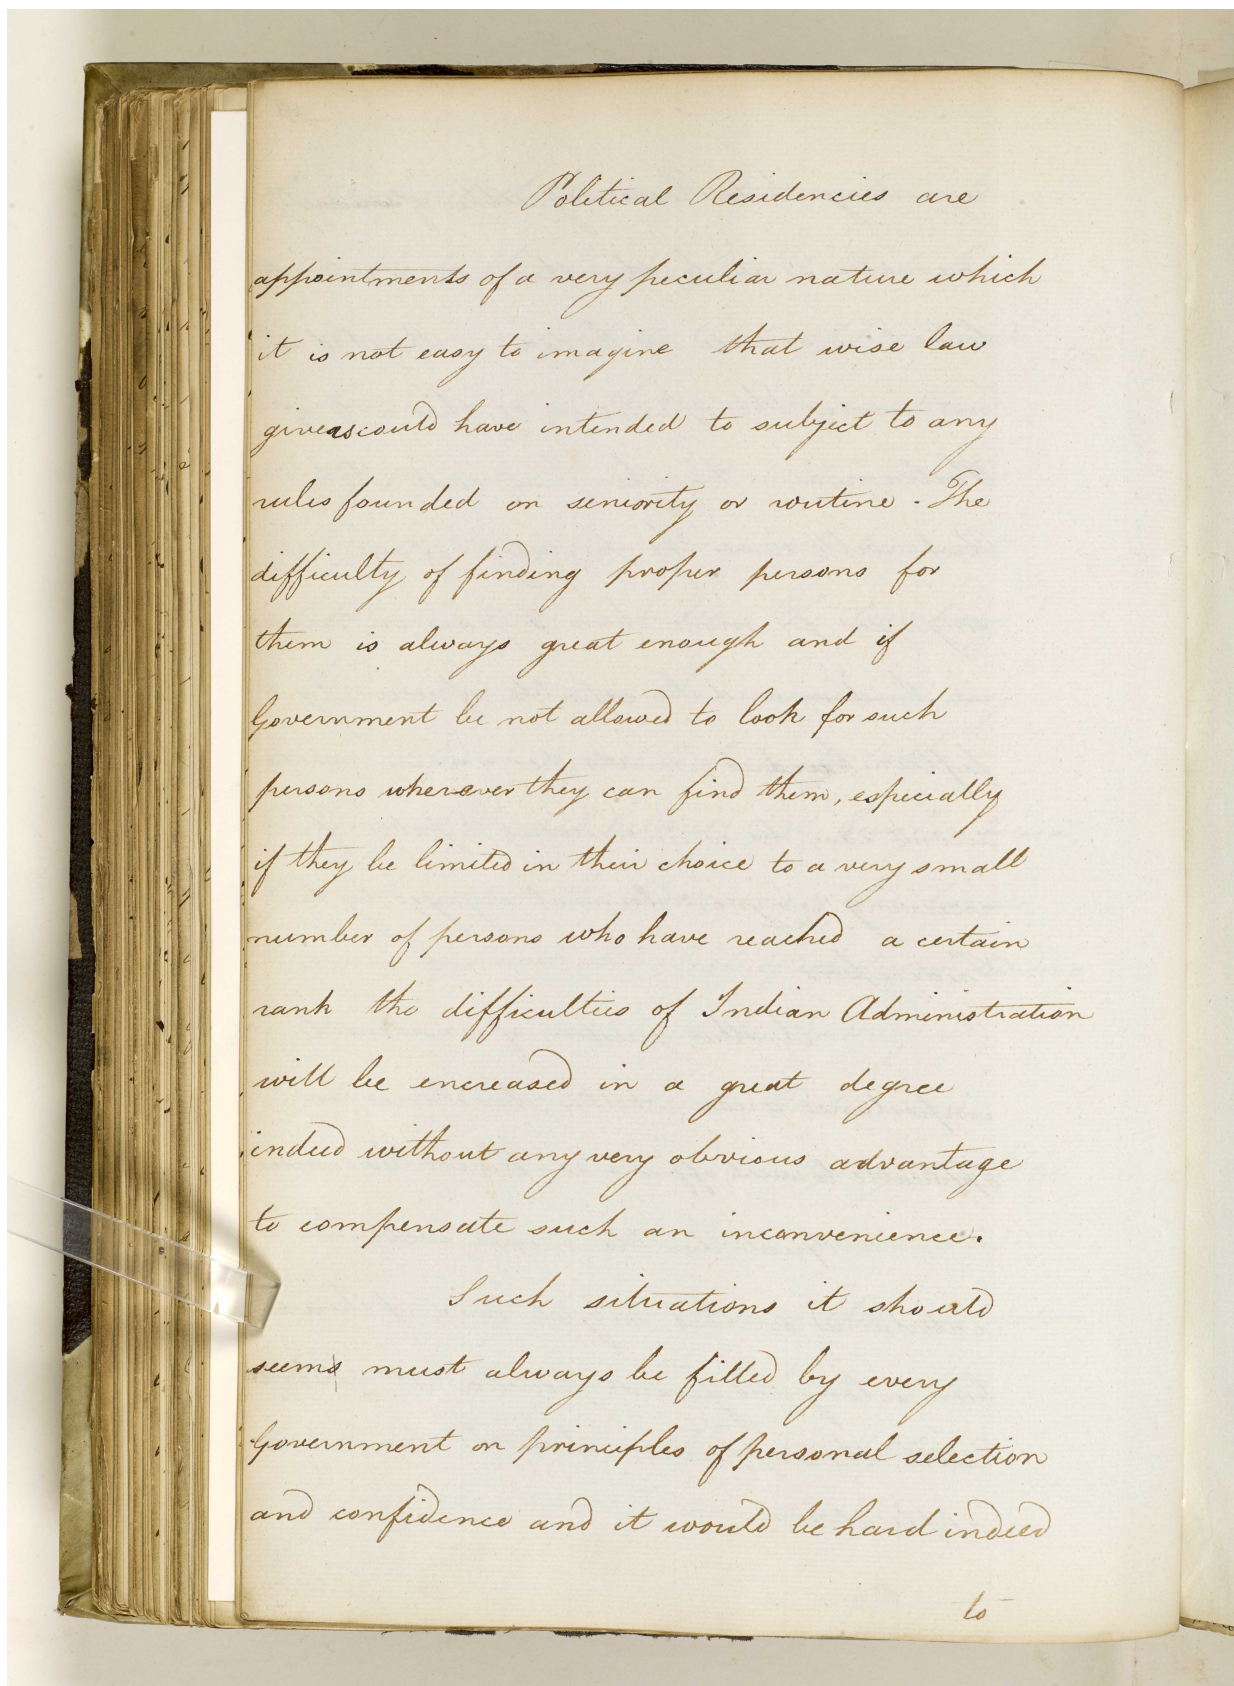 Political Residencies are
appointments of a very peculiar nature which
it is not easy to imagine that wise law
givers could have intended to subject to any
rules founded on seniority or routine. The
difficulty of finding proper persons for
them is always great enough and if
Government be not allowed to look for such
persons wherever they can find them, especially
if they be limited in their choice to a very small
number of persons who have reached a certain
rank the difficulties of Indian Administration
will be encreased in a great degree
indeed without any very obvious advantage
to compensate such an inconvenience.
Such situations it should
seems must always be filled by every
Government on principles of personal selection
and confidence and it would be hard indeed
to